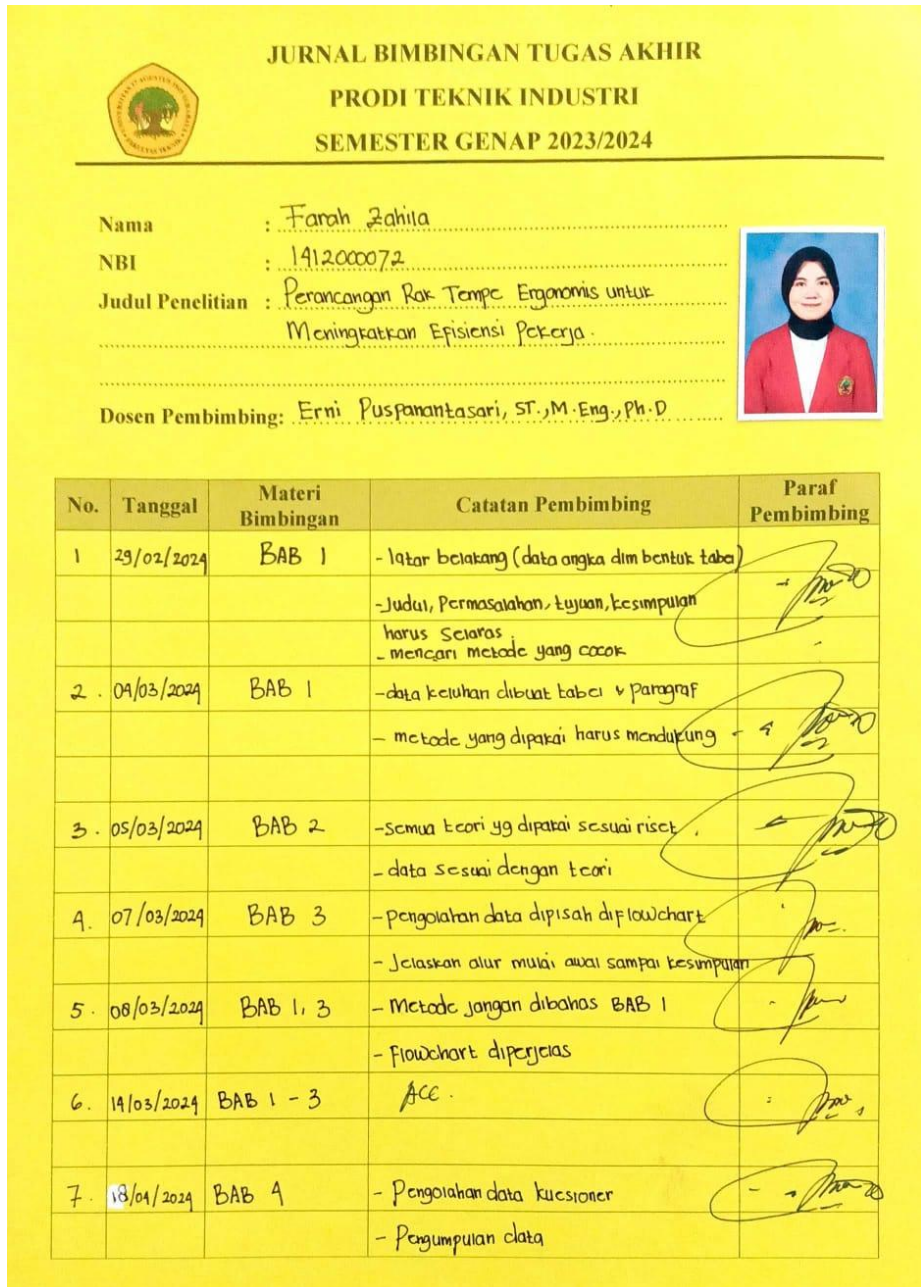 JURNAL BIMBINGAN TUGAS AKHIR
PRODI TEKNIK INDUSTRI
SEMESTER GENAP 2023/2024
Nama : Farah Zahila
NBI : 1412000072
Judul Penelitian : Perancangan Rak Tempe Ergonomis untuk
Meningkatkan Efisiensi Pekerja.
Dosen Pembimbing: Erni Puspanantasari, ST.,M.Eng.,Ph.D
No. Tanggal Materi Bimbingan Catatan Pembimbing Paraf Pembimbing
1 29/02/2024 BAB 1 - latar belakang (data angka dlm bentuk tabel)
- Judul, Permasalahan, tujuan, kesimpulan
harus selaras.
- mencari metode yang cocok
2. 04/03/2024 BAB 1 - data keluhan dibuat tabel & paragraf
- metode yang dipakai harus mendukung
3. 05/03/2024 BAB 2 - semua teori yg dipakai sesuai riset.
- data sesuai dengan teori
4. 07/03/2024 BAB 3 - pengolahan data dipisah diflowchart
- Jelaskan alur mulai awal sampai kesimpulan
5. 08/03/2024 BAB 1, 3 - Metode jangan dibahas BAB 1
- Flowchart diperjelas
6. 14/03/2024 BAB 1 - 3 ACC.
7. 18/04/2024 BAB 4 - Pengolahan data kuesioner
- Pengumpulan data